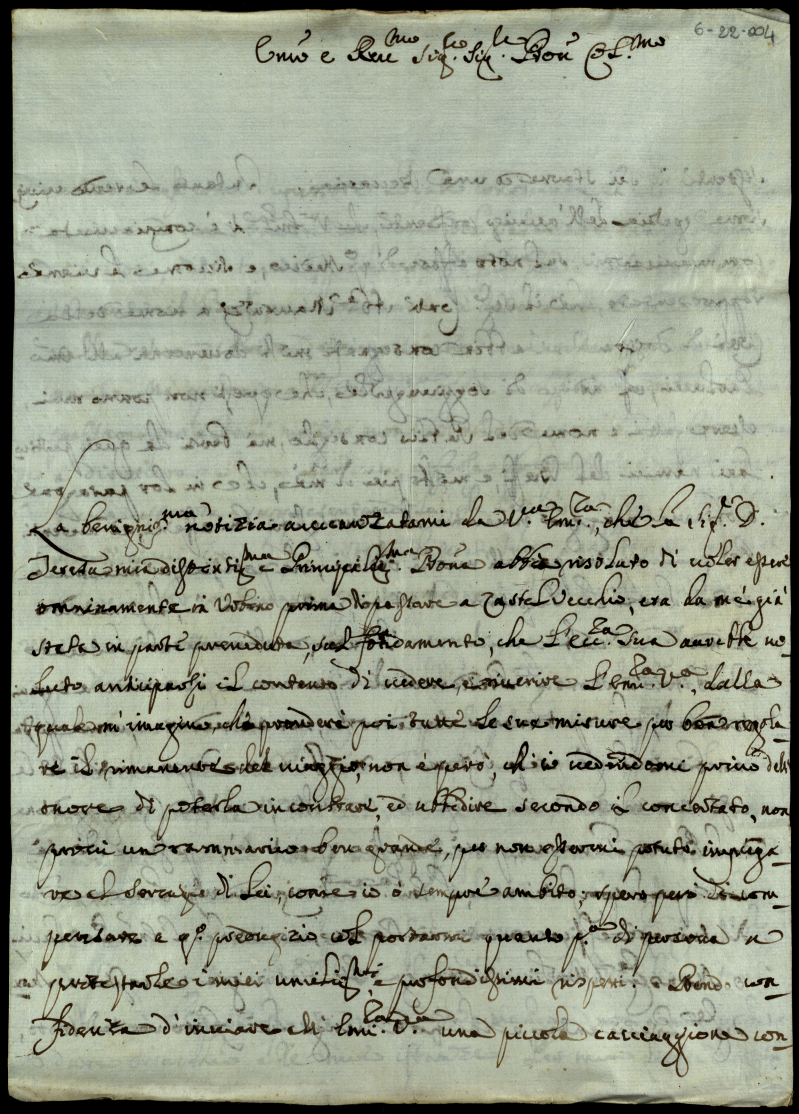 6-22-004
Em̃o e Rev.mo Sig.re Sig.re Pr̃on Col.mo
La benignis.ma notizia avvanzatami da V.ra Emi.za, che la Sig.ra D.
Teresa mia distintis.ma e Principalis.ma Pr̃ona abbia risoluto di voler essere
omninamente in Urbino prima di passare a Castel Vecchio, era da me già
stata in parte preveduta, sul fondamento, che l'Ecc.za Sua avrebbe vo-
luto anticiparsi il contento di vedere, e riverire l'Emi.za V.a, dalla
quale m'imagino, che prenderà poi tutte le sue misure per ben regola-
re il rimanente del viaggio, non è però, ch'io vedendomi privo dell'
onore di poterla incontrare, ed ubbidire secondo il concertato, non
provi un rammarico ben grande, per non essermi potuto impiega-
re al servizio di Lei, come io ò sempre ambito; spero però di com-
pensare a q.o pregiudizio col portarmi quanto p.a di persona a
protestarle i miei umiliss.mi e profondissimi rispetti. Prendo con-
fidenza d'inviare all'Emi.za V.ra una piccola cacciaggione con-